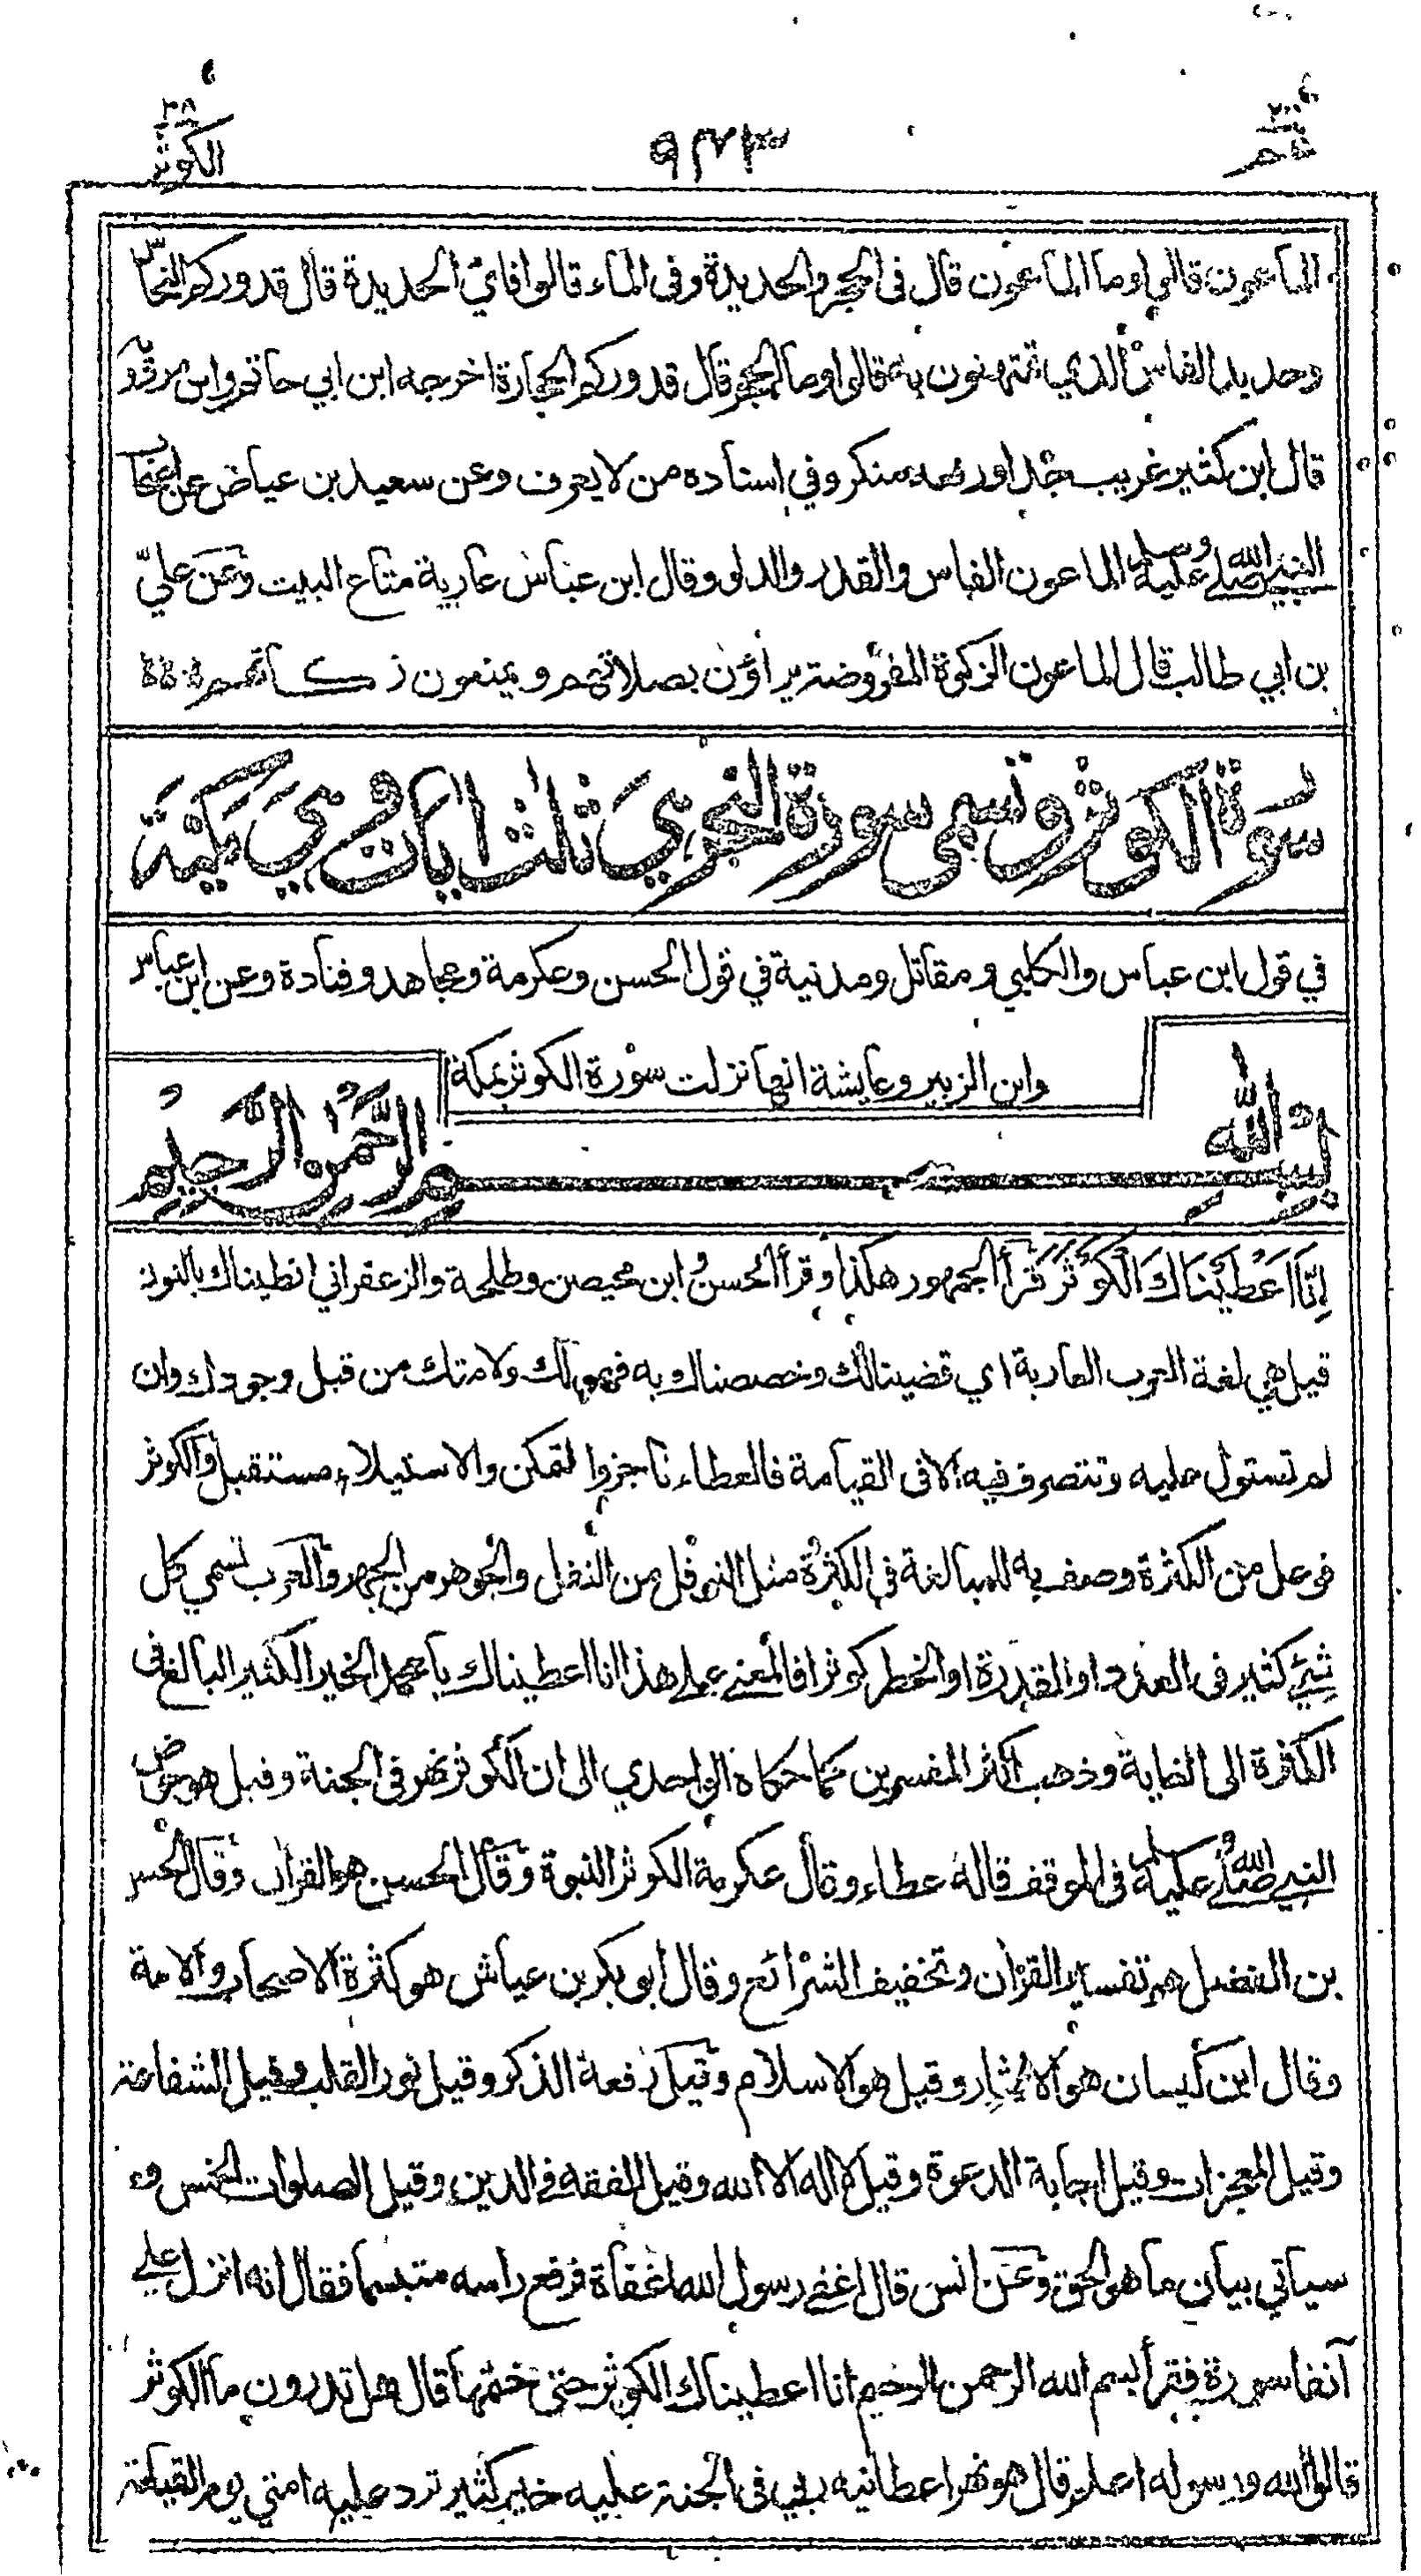 الكوثر
٣٨
عم
٣٠
الماعون قالوا وما الماعون قال في الحجر والحديدة وفي الماء قالوا فاي الحديدة قال قدوركم النحاس
وحديد الفاس الذي تمتهنون به قالوا وما الحجر قال قدوركم الحجارة اخرجه ابن ابي حاتم وابن مردويه
قال ابن كثير غريب جدا ورفعه منكر وفي اسناده من لا يعرف وعن سعيد بن عياض عن اصحاب
النبي صلى الله عليه وسلم الماعون الفاس والقدر والدلو وقال ابن عباس عارية متاع البيت وعن علي
بن ابي طالب قال الماعون الزكوة المفروضة يراؤن بصلاتهم ويمنعون زكاتهم
سورة الكوثر وتسمى سورة النحر وهي ثلث ايات وهي مكية
في قول ابن عباس والكلبي ومقاتل ومدنية في قول الحسن وعكرمة ومجاهد وقتادة وعن ابن عباس
وابن الزبير وعايشة انها نزلت سورة الكوثر بمكة
بسم الله الرحمن الرحيم
اِنَّا اَعْطَيْنَاكَ الْكَوْثَرَ قرأ الجمهور هكذا وقرأ الحسن وابن محيصن وطلحة والزعفراني انطيناك بالنون
قيل هي لغة العرب العاربة اي قضينا لك وخصصناك به فهو لك ولامتك من قبل وجودك وان
لم تستول عليه وتتصرف فيه الا في القيامة فالعطاء ناجز والتمكن والاستيلاء مستقبل والكوثر
فوعل من الكثرة وصف به للمبالغة في الكثرة مثل النوفل من النفل والجوهر من الجهر والعرب تسمي كل
شيئ كثير في العدد او المقدرة او الخطر كوثرا فالمعنى على هذا انا اعطيناك يا محمد الخير الكثير البالغ في
الكثرة الى الغاية وذهب اكثر المفسرين كما حكاه الواحدي الى ان الكوثر نهر في الجنة وقيل هو حوض
النبي صلى الله عليه وسلم في الموقف قاله عطاء وقال عكرمة الكوثر النبوة وقال الحسن هو القران وقال الحسن
بن الفضل هو تفسير القرآن وتخفيف الشرائع وقال ابو بكر بن عياش هو كثرة الاصحاب والامة
وقال ابن كيسان هو الايثار وقيل هو الاسلام وقيل رفعة الذكر وقيل نور القلب وقيل الشفاعة
وقيل المعجزات وقيل اجابة الدعوة وقيل لا اله الا الله وقيل الفقه في الدين وقيل الصلوات الخمس و
سياتي بيان ما هو الحق وعن انس قال اغفى رسول الله اغفأة فرفع راسه متبسما فقال انه انزل علي
آنفا سورة فقرأ بسم الله الرحمن الرحيم انا اعطيناك الكوثر حتى ختمها قال هل تدرون ما الكوثر
قالوا الله ورسوله اعلم قال هو نهر اعطانيه ربي في الجنة عليه خير كثير ترد عليه امتي يوم القيامة